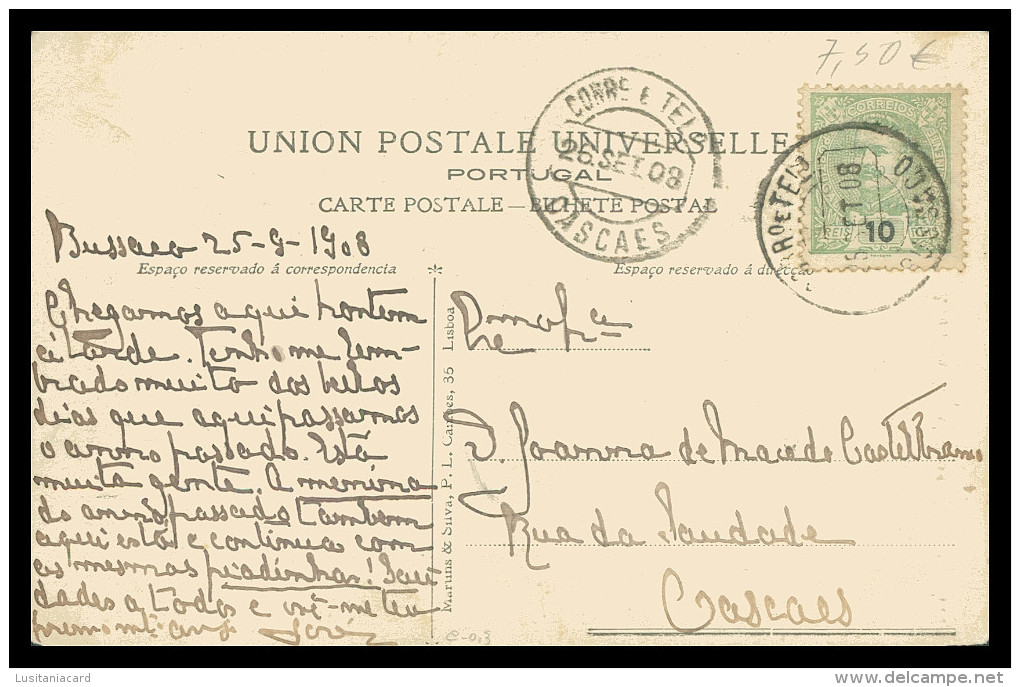 7,50 €
CORRº E TELº
26.SET.08
CASCAES
CORREIOS
REIS 10
UNION POSTALE UNIVERSELLE
PORTUGAL
CARTE POSTALE — BILHETE POSTAL
Bussaco 25-9-1908
Espaço reservado á correspondencia
Espaço reservado á direcção
Chegamos aqui hontem
á tarde. Tenho me lem-
brado muito dos bellos
dias que aqui passamos
o anno passado. Está
muita gente. A menina
do anno passado tambem
aqui está e continua com
as mesmas piadinhas! Sau
dades a todos e crê-me teu
primo m.to am.go José
Martins & Silva, P. L. Camões, 35 Lisboa
D. Joanna de Macedo Castelbranco
Rua da Saudade
Cascaes
C-0,3
Lusitaniacard
delcampe.net